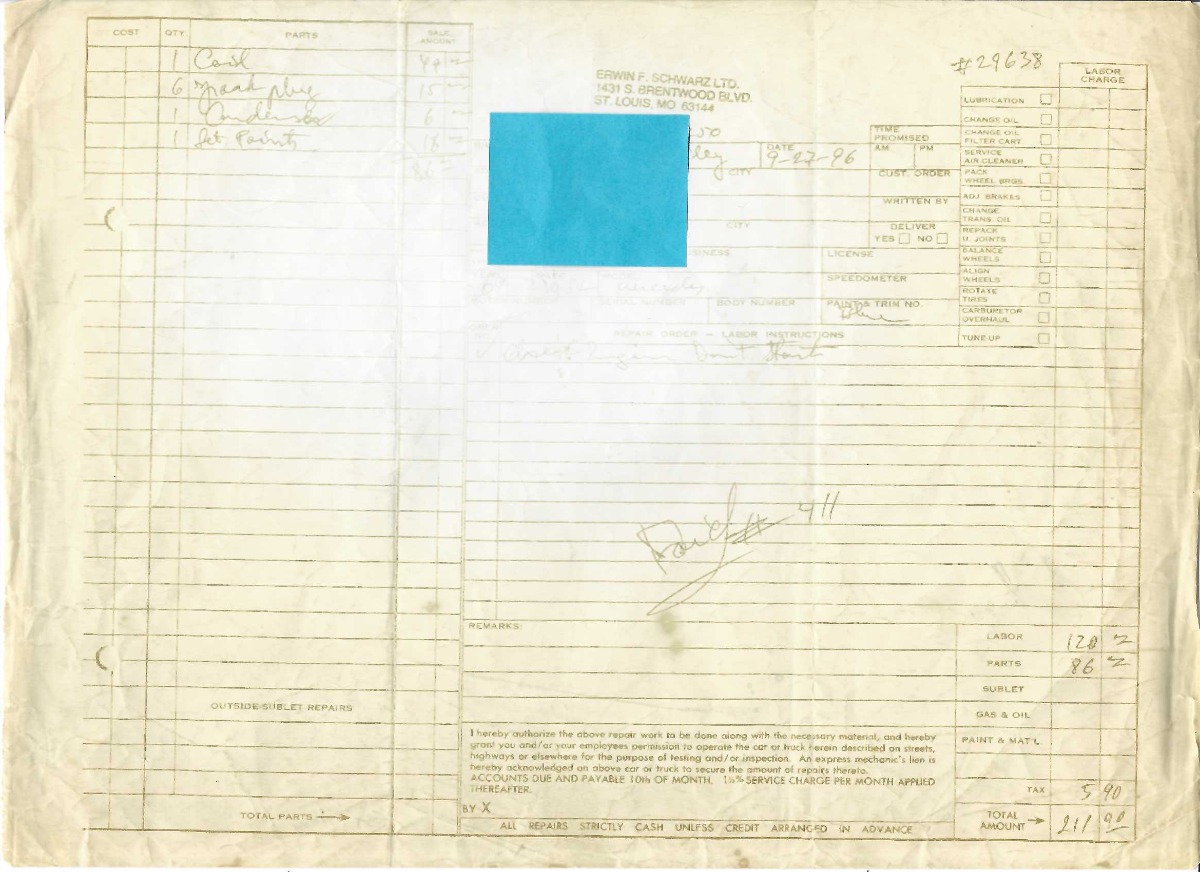 COST QTY. PARTS SALE AMOUNT
1 Coil 44
6 spark plug 15
1 Condensor 6
1 Set Points 18
86
#29638
ERWIN F. SCHWARZ LTD.
1431 S. BRENTWOOD BLVD.
ST. LOUIS, MO 63144
LABOR CHARGE
LUBRICATION
CHANGE OIL
CHANGE OIL FILTER CART
SERVICE AIR CLEANER
PACK WHEEL BRGS.
ADJ. BRAKES
CHANGE TRANS. OIL
REPACK U. JOINTS
BALANCE WHEELS
ALIGN WHEELS
ROTATE TIRES
CARBURETOR OVERHAUL
TUNE-UP
DATE 9-27-96
TIME PROMISED
AM PM
CITY
CUST. ORDER
WRITTEN BY
CITY
DELIVER
YES NO
LICENSE
SPEEDOMETER
SERIAL NUMBER BODY NUMBER PAINT & TRIM NO.
Blue
REPAIR ORDER — LABOR INSTRUCTIONS
Don't Start
411
REMARKS:
LABOR 120
PARTS 86
SUBLET
GAS & OIL
PAINT & MAT'L
TAX 5 90
TOTAL AMOUNT 211 90
OUTSIDE SUBLET REPAIRS
TOTAL PARTS
I hereby authorize the above repair work to be done along with the necessary material, and hereby
grant you and/or your employees permission to operate the car or truck herein described on streets,
highways or elsewhere for the purpose of testing and/or inspection. An express mechanic's lien is
hereby acknowledged on above car or truck to secure the amount of repairs thereto.
ACCOUNTS DUE AND PAYABLE 10th OF MONTH. 1½% SERVICE CHARGE PER MONTH APPLIED
THEREAFTER.
BY X
ALL REPAIRS STRICTLY CASH UNLESS CREDIT ARRANGED IN ADVANCE